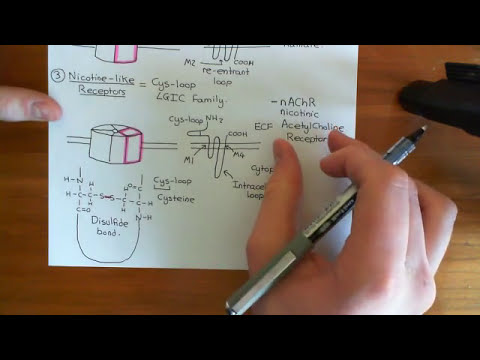 M2
COOH
re-entrant
loop
③ Nicotine-like
Receptors
= Cys-loop
LGIC Family.
Cys-loop
NH₂
COOH
M1
M4
Intrace
loop
- nAChR
nicotinic
ECF
AcetylCholine
Receptor
Cys-loop
Cysteine
-N-H
H
-C-C-S-S-C-C-H
H
H
H
C=O
O=C
N-H
Disulfide
bond.